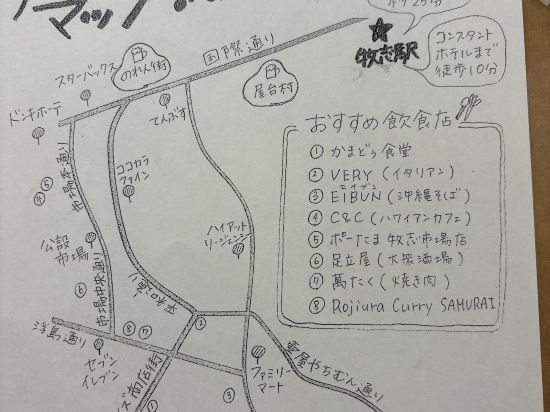 マップ
ホテル
徒歩2分
牧志駅
コンスタント
ホテルまで
徒歩10分
国際通り
のれん街
スターバックス
ドンキホーテ
てんぶす
屋台村
おすすめ飲食店
① かまどぅ食堂
② VERY (イタリアン)
③ EIBUN (沖縄そば)
エイブン
④ C&C (ハワイアンカフェ)
⑤ ポーたま 牧志市場店
⑥ 足立屋 (大衆酒場)
⑦ 萬たく (焼き肉)
⑧ Rojiura Curry SAMURAI
ココカラ
ファイン
市場本通り
④ ⑤
公設
市場
⑥
市場中央通り
ハイアット
リージェンシー
浮島通り
⑧ ⑦
②
セブン
イレブン
商店街
ファミリー
マート
壺屋やちむん通り
③
①